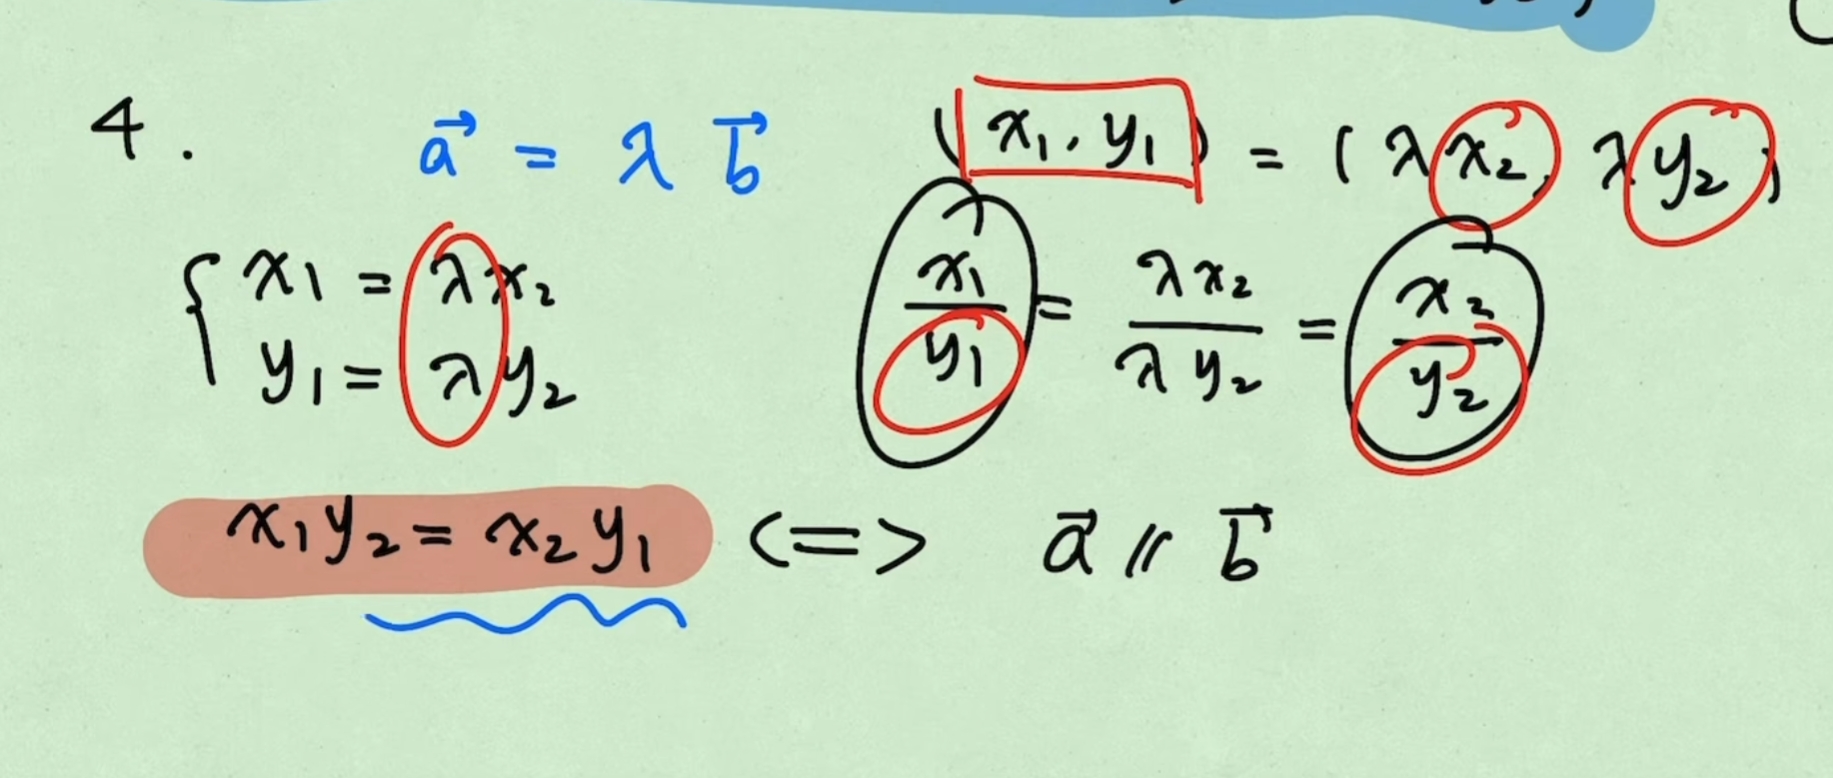 4. a⃗ = λ b⃗ (x₁, y₁) = (λx₂, λy₂)
{ x₁ = λx₂
y₁ = λy₂
x₁/y₁ = λx₂/λy₂ = x₂/y₂
x₁y₂ = x₂y₁ <=> a⃗ // b⃗